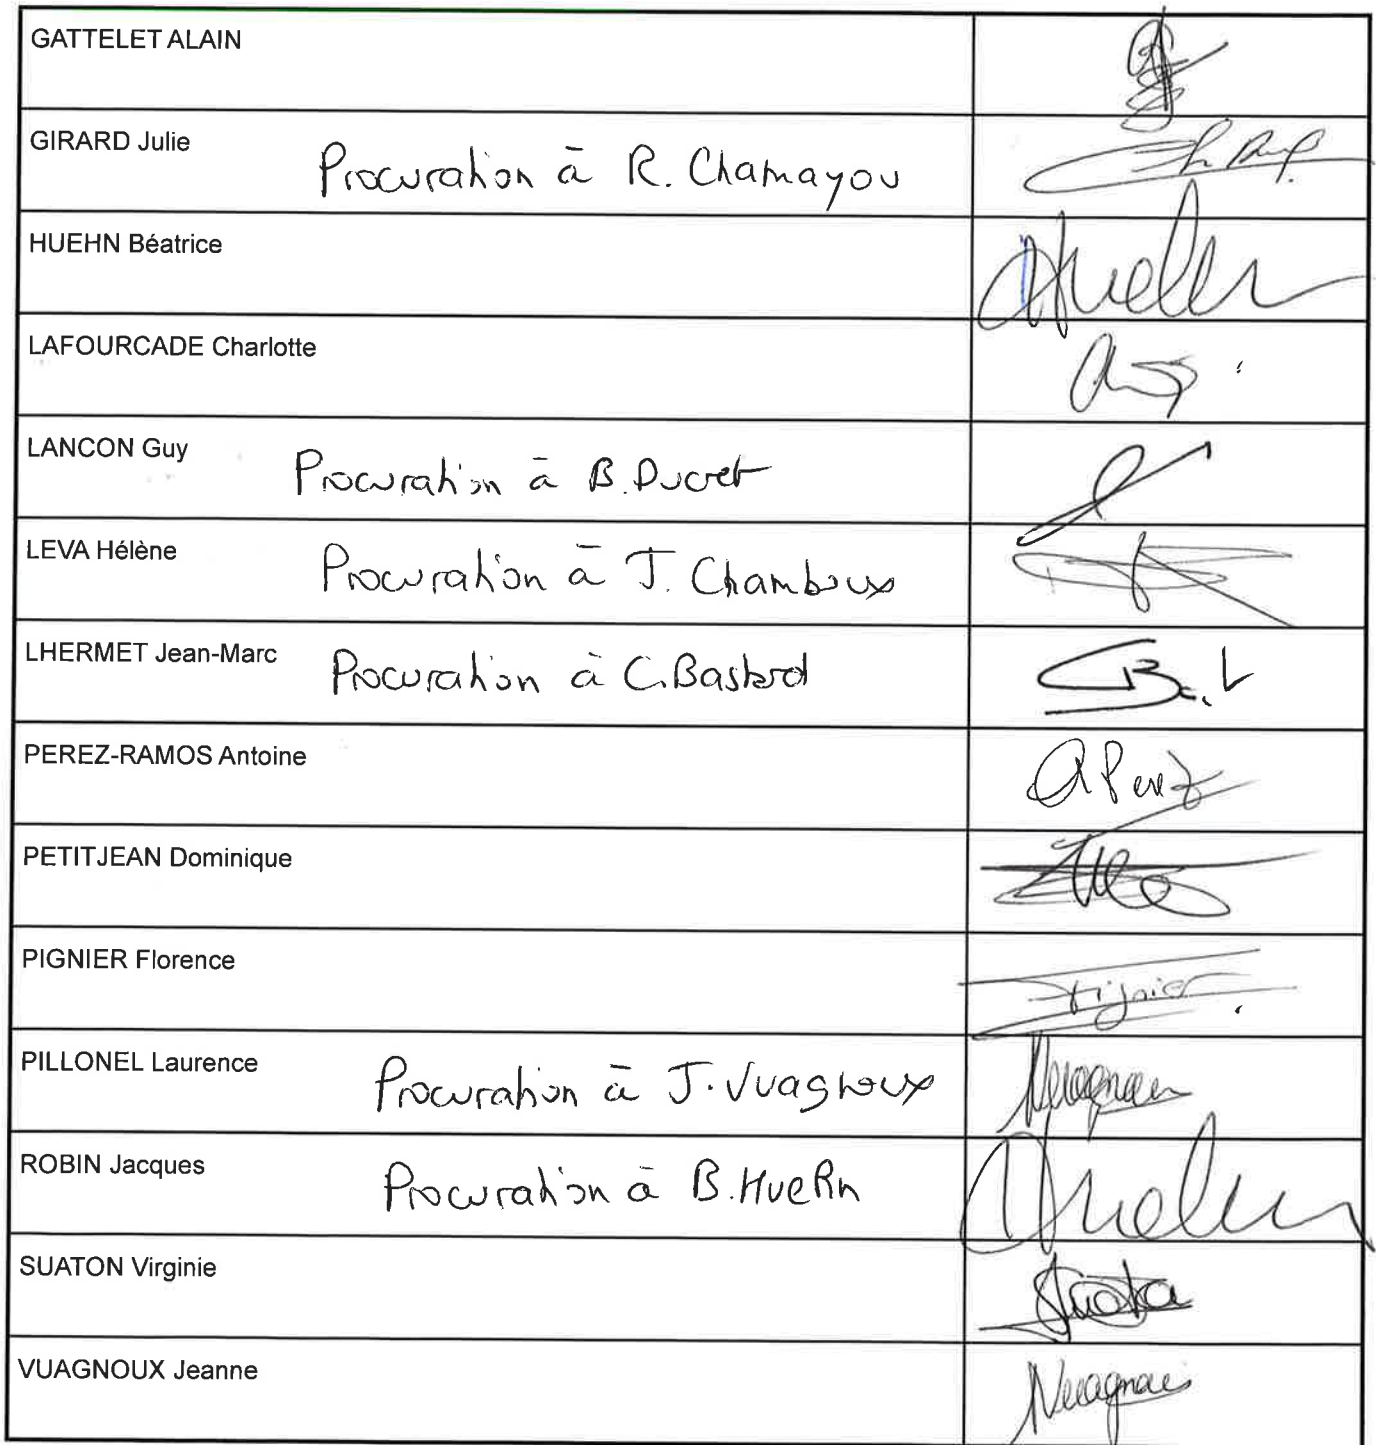 GATTELET ALAIN
GIRARD Julie
Procuration à R. Chamayou
HUEHN Béatrice
LAFOURCADE Charlotte
LANCON Guy
Procuration à B. Ducret
LEVA Hélène
Procuration à J. Chamboux
LHERMET Jean-Marc
Procuration à C. Bastard
PEREZ-RAMOS Antoine
A Perez
PETITJEAN Dominique
PIGNIER Florence
Pignier
PILLONEL Laurence
Procuration à J. Vuagnoux
ROBIN Jacques
Procuration à B. Huehn
SUATON Virginie
VUAGNOUX Jeanne